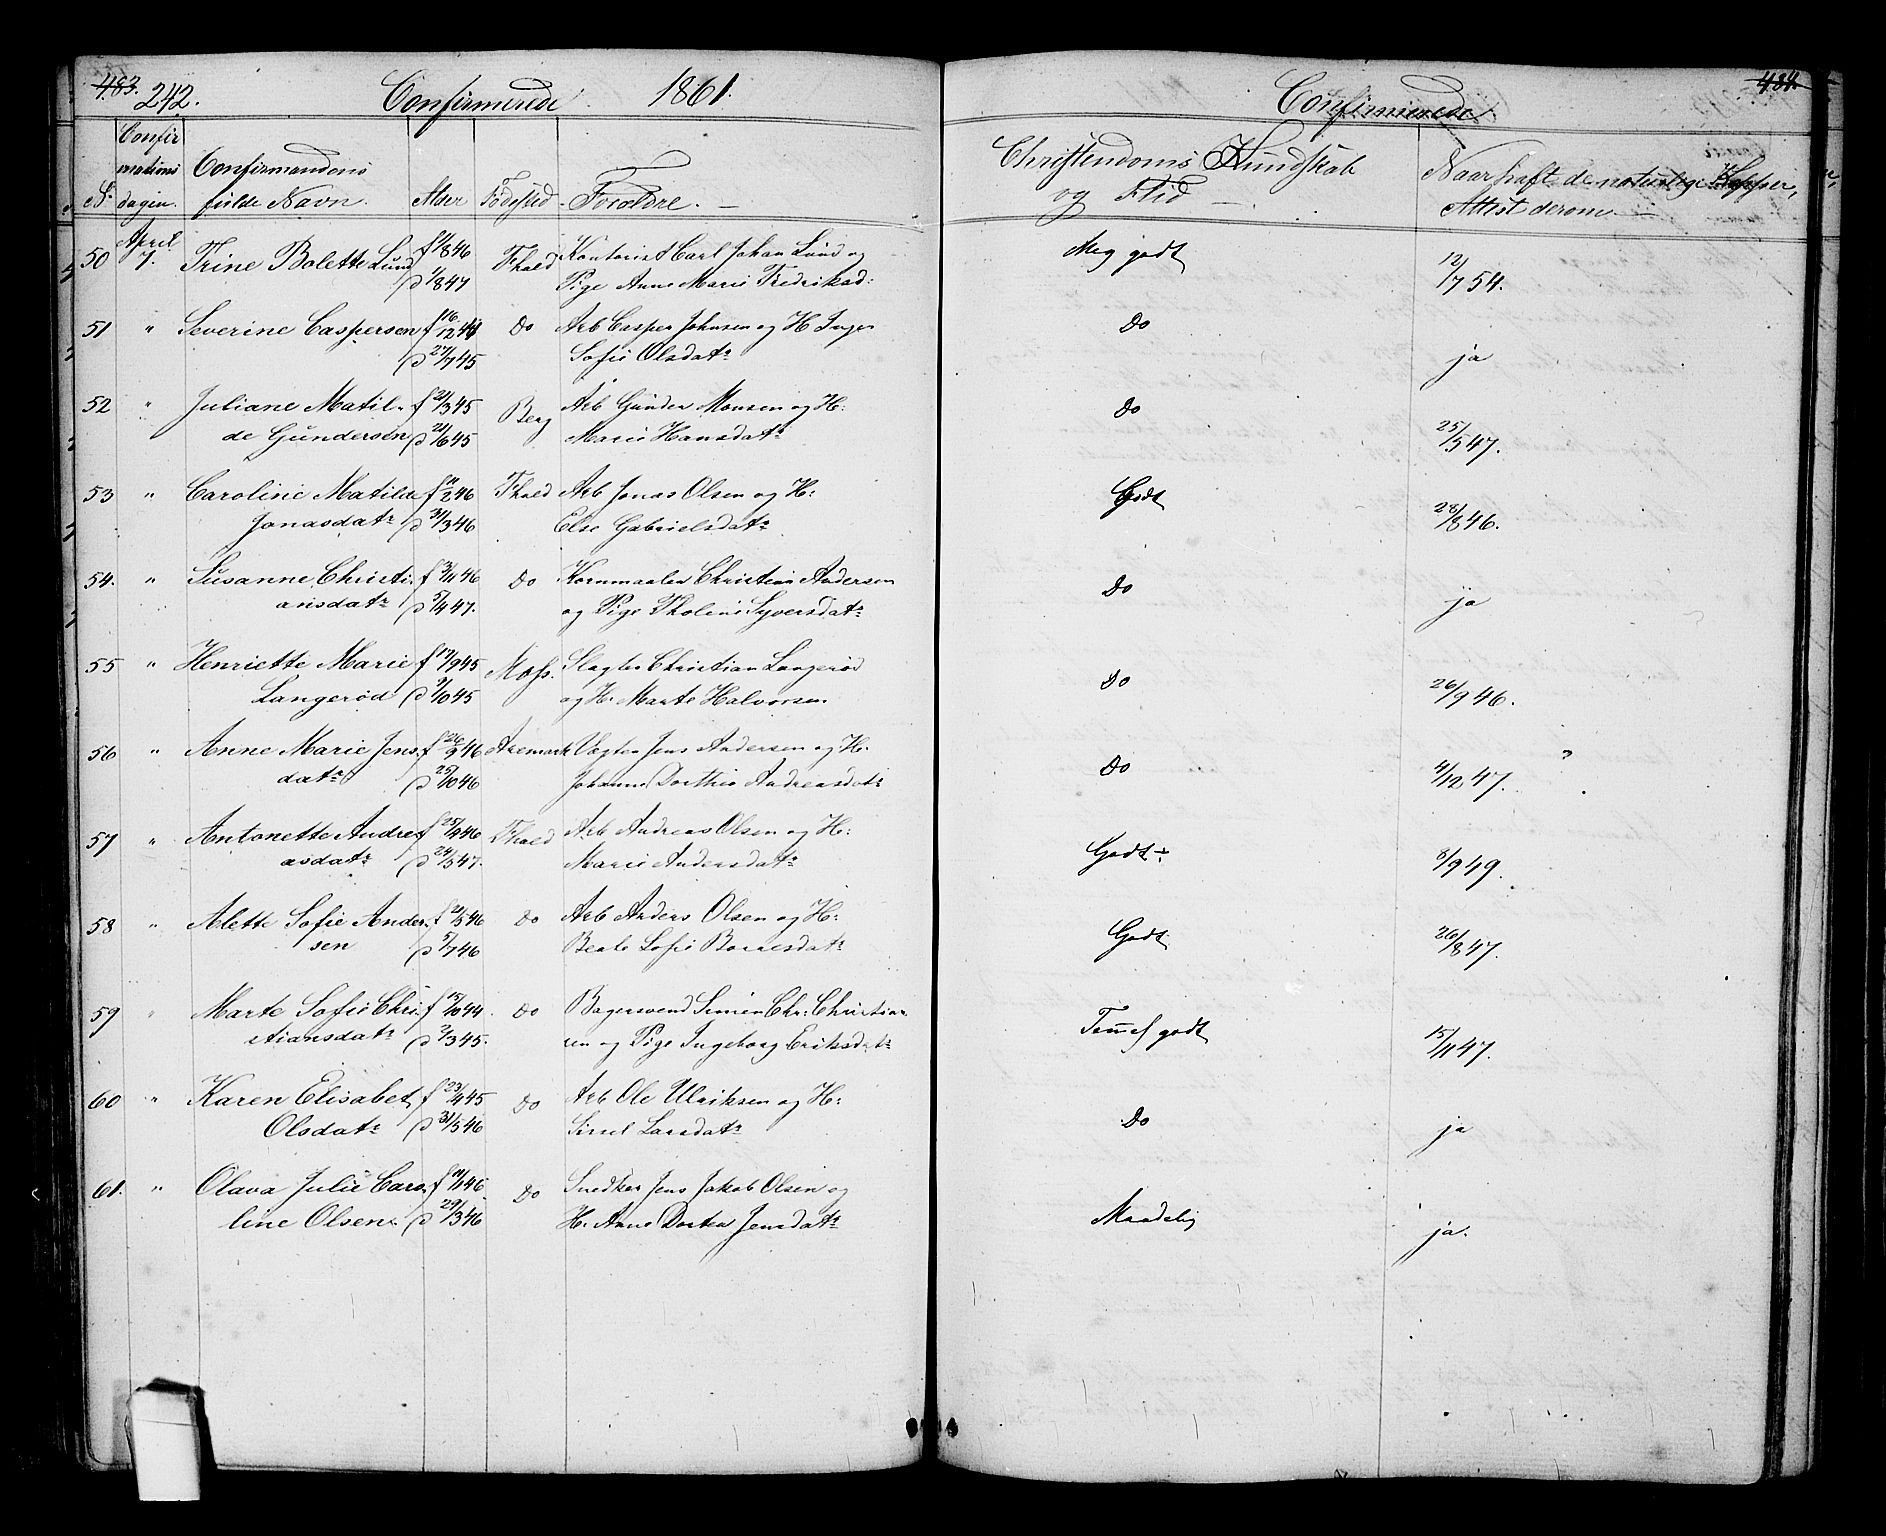 483. 242. Confirmerede. 1861.
Confirmerede. 484.
No Confirmations dagen. Confirmandens fulde Navn. Alder Fødested Forældre. —
Christendoms Kundskab og Flid — Naar haft de naturlige Kopper, Attest derom. —
April
50 7. Trine Bolette Lund f 846 Fhald Kontorist Carl Johan Lund og Meg godt 12/7 54.
d 1/8 47 Pige Anne Marie Fredriksd:
51 " Severine Caspersen f 16/12 44 Do Arb Casper Johnsen og H Inger Do ja
d 27/7 45 Sofie Olsdatr
52 " Juliane Matil- f 21/3 45 Berg Arb Gunder Monsen og H: Do 25/5 47.
de Gundersen d 21/6 45 Marie Hansdatr
53 " Caroline Matilde f 11/2 46 Fhald Arb Jonas Olsen og H: Godt 28/8 46.
Jonasdatr d 31/3 46 Else Gabrielsdatr
54. " Susanne Christi- f 3/11 46 Do Kornmaaler Christian Andersen Do ja
ansdatr d 5/4 47. og Pige Tholine Syversdatr
55 " Henriette Marie f 17/9 45 Moss. Slagter Christian Langerød Do 26/9 46.
Langerød d 9/10 45 og H. Marte Halvorsen
56 " Anne Marie Jens- f 26/9 46 Aremark Vogter Jens Andersen og H. Do 4/12 47. ?
datr d 25/10 46 Johanne Dorthea Andreasdatr
57 " Antonette Andre- f 25/4 46 Fhald Arb Andreas Olsen og H: Godt ÷ 8/9 49.
asdatr d 24/5 47. Marie Andersdatr
58 " Alette Sofie Ander- f 21/5 46 Do Arb Anders Olsen og H: Godt 26/8 47.
sen d 5/7 46 Beate Sofie Borresdatr
59 " Marte Sofie Chri- f 15/10 44. Do Bagersvend Simen Chr: Christian- Temmel godt 15/11 47.
stiansdatr d 2/3 45. sen og Pige Ingeborg Eriksdatr
60 " Karen Elisabet f 23/4 45 Do Arb Ole Ulriksen og H: Do ja
Olsdatr d 31/5 46 Sissel Larsdatr
61. " Olava Julie Caro- f 11/1 46 Do Snedker Jens Jakob Olsen og Maadelig ja.
line Olsen. d 29/3 46 H. Anne Dortea Jensdatr